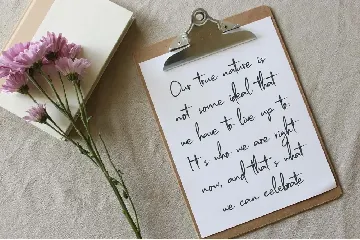 Our true nature is
not some ideal that
we have to live up to.
It's who we are right
now, and that's what
we can celebrate